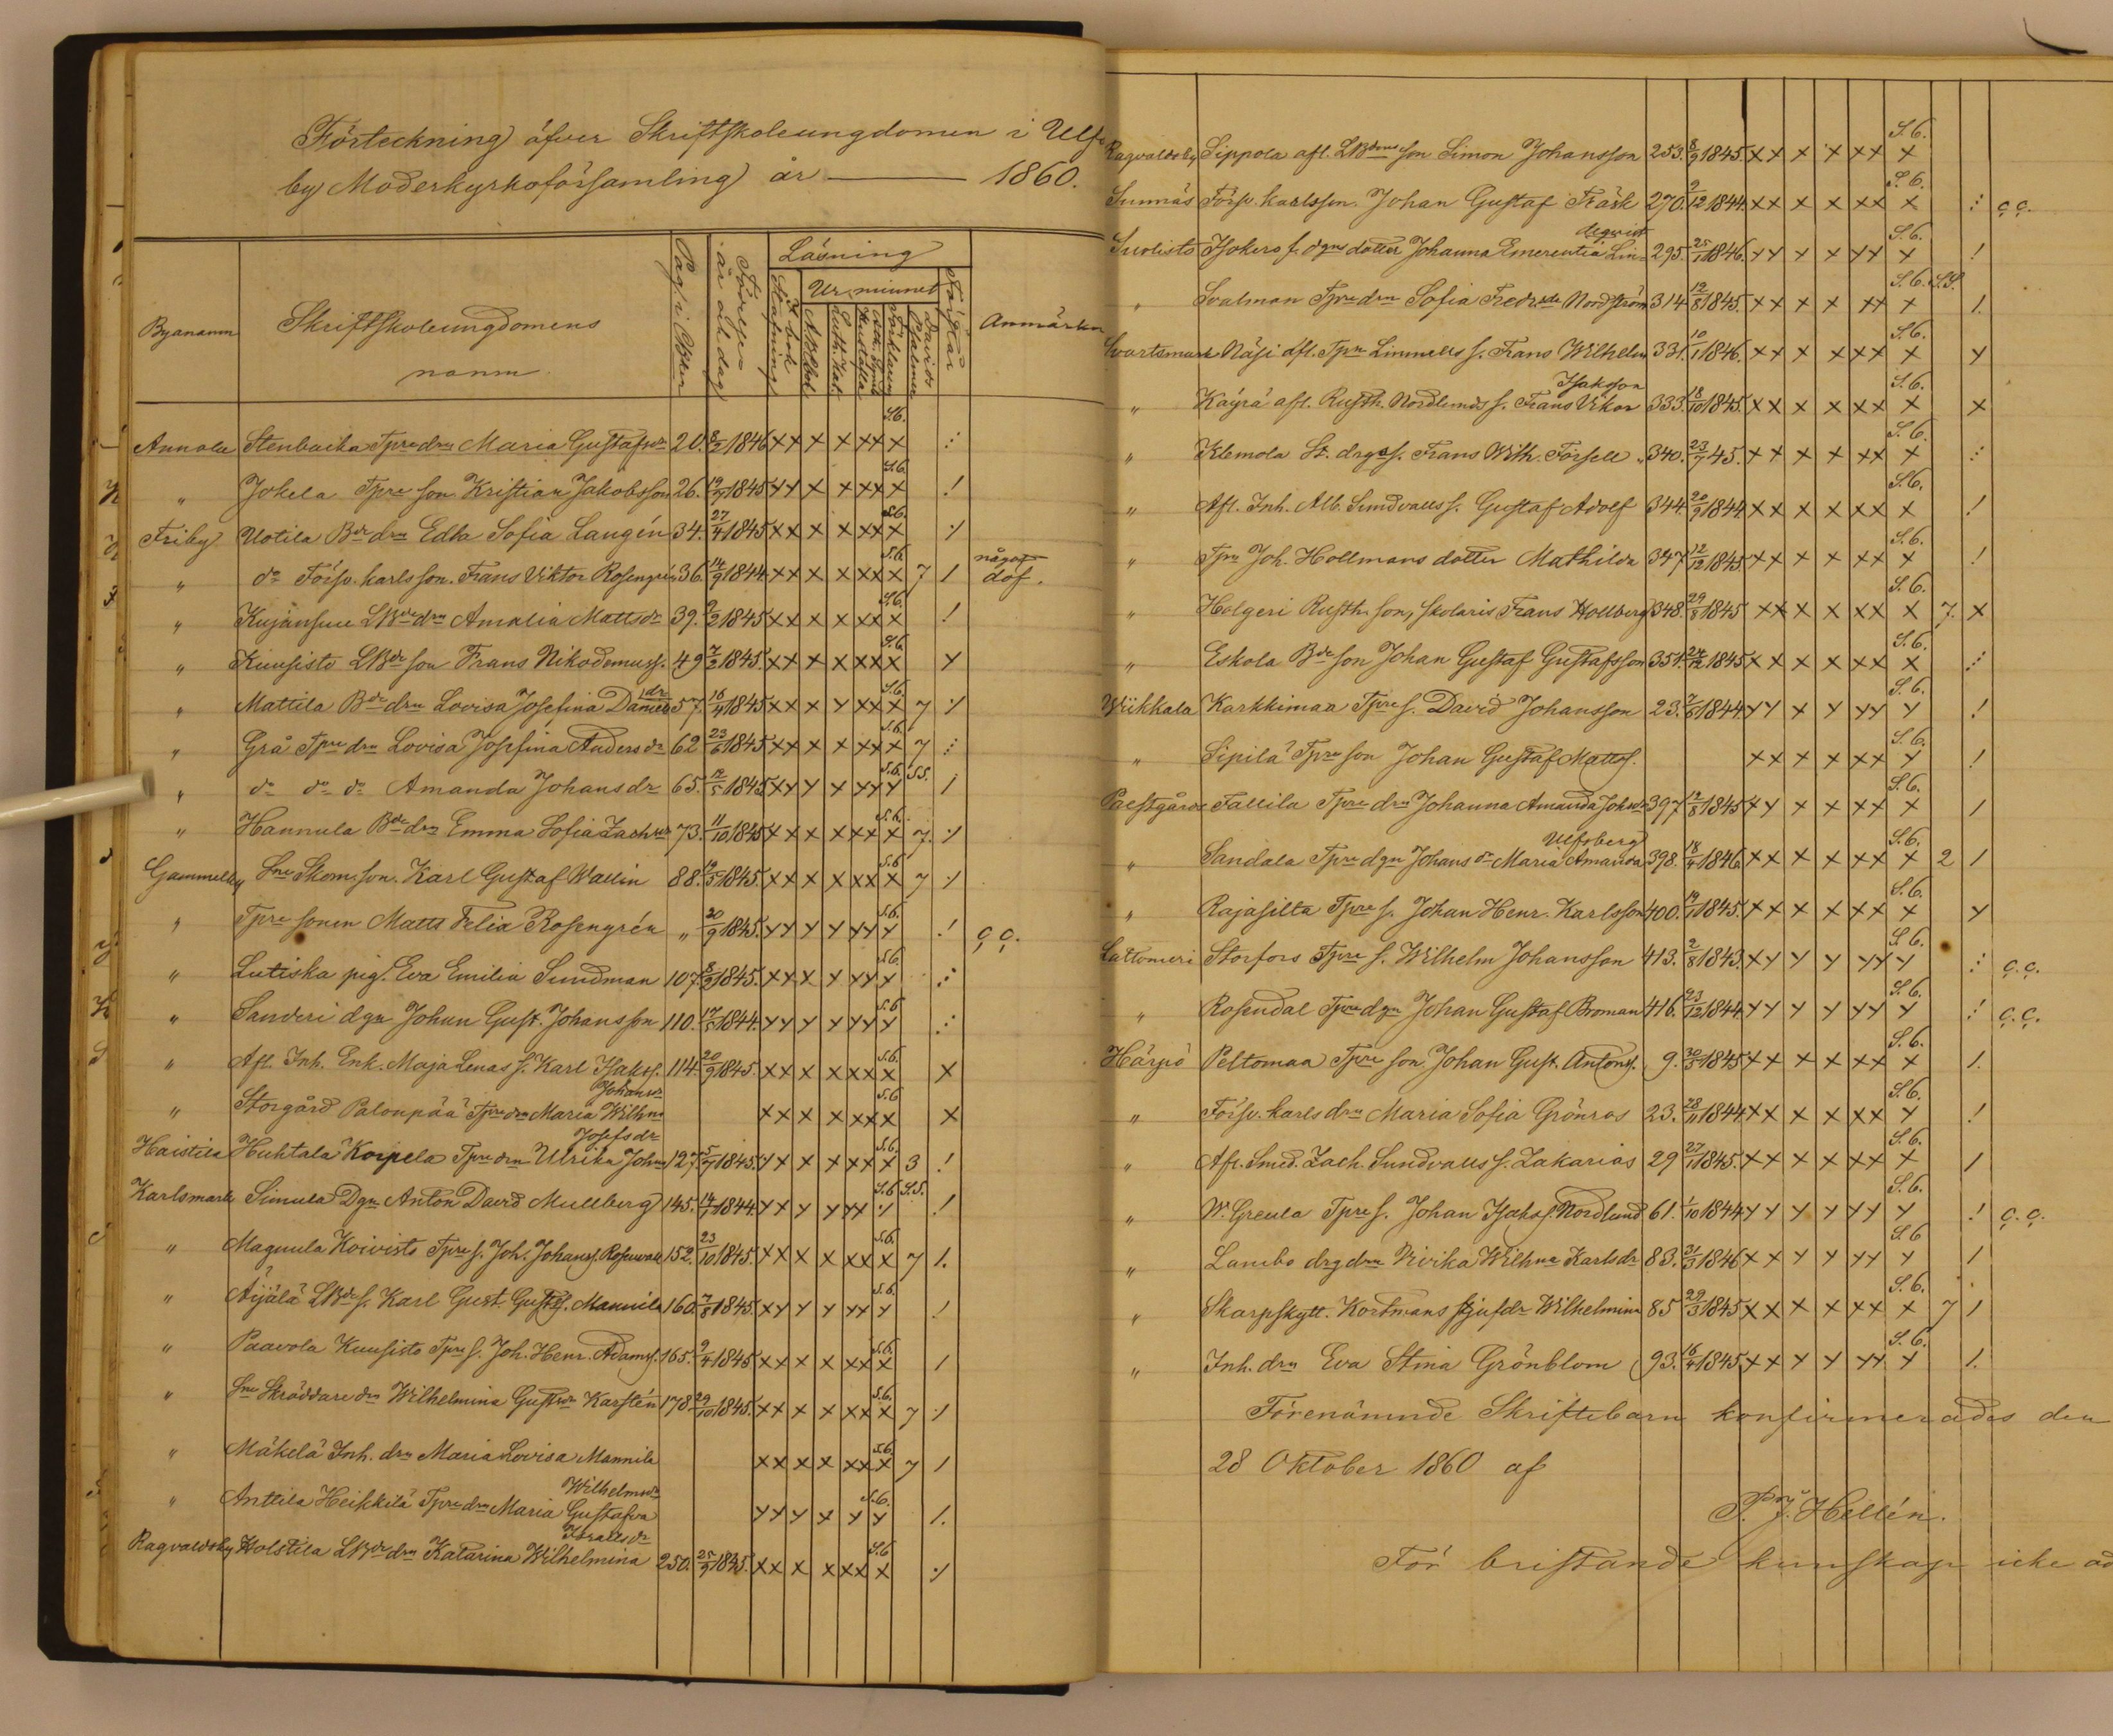 Förteckning öfver Skriftskoleungdomen i Ulfs
by Moderkyrkoförsamling år — 1860.
Byanamn Skriftskoleungdomens namn. Pag. i Bken Födelse år och dag Läsning Förstånd Anmärkn
I bok Stafning Ur minnet
Abcbok Luth. Kat. Hustafla Davids Psalmer
Annola Stenbacka Tpredrn Maria Gustafsdr 20. 8/2 1846 x x x x x x x S.6. :
" Jokela Tpre son Kristian Jakobsson 26. 19/9 1845 x x x x x x x S.6. !
Friby Uotila Bde drn Edla Sofia Laugén 34. 27/4 1845 x x x x x x x S.6. ./
" do Förpr. karls son. Frans Viktor Rosengrén 36. 14/9 1844 x x x x x x x S.6. 7 / något döf.
" Kujansuu LBdedrn Amalia Mattsdr 39. 9/2 1845 x x x x x x x S.6. !
" Kuusisto LBde son Frans Nikodemuss. 49 7/2 1845. x x x x x x x S.6. x
" Mattila Bde drn Lovisa Josefina Danielsdr 57. 16/4 1845 x x x x x x x S.6. 7 ./
" Grå Tpre drn Lovisa Josefina Andersdr 62 23/6 1845 x x x x x x x S.6. 7 :
" do do do Amanda Johansdr 65. 12/5 1845 x x x x x x x S.6. S.S. /
" Hannula Bdedrn Emma Sofia Zachrdr 73. 11/10 1845 x x x x x x x S.6. 7. ./
Gammelby Sne Skom. son. Karl Gustaf Wallin 88. 19/5 1845. x x x x x x x S.6. 7 ./
" Tpre sonen Matts Felix Rosengrén " 20/9 1845. x x x x x x x S.6. .! ç ç.
" Lutiska pig. Eva Emilia Sundman 107. 8/2 1845. x x x x x x x S.6. :
" Sanderi dgn Johan Gust. Johansson 110. 17/5 1844. x x x x x x x S.6 :
" Afl. Inh. Enk. Maja Lenas s. Karl Isaks. 114. 20/9 1845. x x x x x x x S.6. x
" Storgård Palonpää Tpre drn Maria Wilhna Johansdr x x x x x x x S.6 x
Haistila Huhtala Korpela Tpre drn Ulrika Johna Josefsdr 127. 5/7 1845. x x x x x x x S.6. 3 !
Karlsmark Simula Dgn Anton David Mullberg 145. 14/1 1844. x x x x x x ./ S.6 S.S. !
" Magnula Koivisto Tpre s. Joh. Johanss. Rosenvall 152. 23/10 1845. x x x x x x x S.6. 7 1.
" Äijälä LBde s. Karl Gust. Gustfs. Mannila 160. 7/8 1845. x x x x x x x S.6. !
" Paavola Kuusisto Tpre s. Joh. Henr. Adams. 165. 9/4 1845 x x x x x x x S.6. /
" Sne Skräddare drn Wilhelmina Gustfsdr Karstén 178. 29/10 1845. x x x x x x x S.6. 7 ./
" Mäkelä Inh. drn Maria Lovisa Mannila x x x x x x x S.6. 7 /
" Anttila Heikkilä Tpre drn Maria Gustafva Wilhelmsdr x x x x x x S.6. 1.
Ragvaldsby Holstila LBde drn Katarina Wilhelmina Israelsdr 250. 25/9 1845. x x x x x x x S.6 ./
Ragvaldsby Sippola afl. LBdens son Simon Johansson 253. 8/9 1845. x x x x x x x S.6.
Sunnäs Förpr. karlsson. Johan Gustaf Träsk 270. 9/12 1844. x x x x x x x S.6. : ç ç.
Suolisto Isokero f. dgns dotter Johanna Emerentia Lindqvist 295. 25/1 1846. x x x x x x x S.6. !
" Svalman Tpre drn Sofia Fredrsdr Nordström 314. 12/8 1845. x x x x x x x S.6. S.S. 1.
Svartsmark Näsi afl. Tpre Linnells s. Frans Wilhelm 331. 10/1 1846. x x x x x x x S.6. x
" Käyrä afl. Rusth. Nordlunds s. Frans Viktor Isaksson 333. 18/10 1845. x x x x x x x S.6. x
" Klemola St. drgs s. Frans Wilh. Forsell 340. 23/7 45. x x x x x x x S.6. :
" Afl. Inh. Alb. Sundvalls s. Gustaf Adolf 344. 20/9 1844 x x x x x x x S.6. !
" Tpre Joh. Hollmans dotter Mathilda 347 12/12 1845. x x x x x x x S.6. !
" Holgeri Rusth. son, skolaris Frans Hollberg 348. 29/8 1845 x x x x x x x S.6. 7. x
" Eskola Bde son Johan Gustaf Gustafsson 351. 24/12 1845 x x x x x x x S.6. :
Wiikkala Karkkimaa Tpre s. David Johansson 23. 7/6 1844 x x x x x x x S.6. !
" Sipilä Tpre son Johan Gustaf Matts. x x x x x x x S.6. !
Paestgårde Fallila Tpre drn Johanna Amanda Johdr 397 12/8 1845 x x x x x x x S.6. /
" Sandala Tpre dgn Johans dr Maria Amanda Ulfsberg 398. 18/4 1846. x x x x x x x S.6. 2 /
" Rajasilta Tpre s. Johan Henr. Karlsson 400. 19/1 1845. x x x x x x x S.6. x
Lattomeri Storfors Tpre s. Wilhelm Johansson 413. 2/8 1843. x x x x x x x S.6. : ç.ç.
" Rosendal Tpre dgn Johan Gustaf Broman 416. 23/12 1844. x x x x x x x S.6. ! ç.ç.
Härpö Peltomaa Tpre son Johan Gust. Antons. 9. 30/5 1845 x x x x x x x S.6. 1.
" Förpr. karls drn Maria Sofia Grönros 23. 28/11 1844. x x x x x x x S.6. !
" Afl. Smed. Zach. Sundvalls s. Zakarias 29 27/1 1845. x x x x x x x S.6. /
" W. Greula Tpre s. Johan Isaks. Nordlund 61. 1/10 1844 x x x x x x x S.6. ! ç.ç.
" Lambo drg drn Vivika Wilhna Karlsdr 83. 31/3 1846 x x x x x x x S.6 /
" Skarpskytt. Kortmans stjufdr Wilhelmina 85 29/3 1845 x x x x x x x S.6. 7 /
" Inh. drn Eva Stina Grönblom 93. 16/4 1845 x x x x x x x S.6. 1.
Förenämnde Skriftebarn konfirmerades den
28 Oktober 1860 af
Hellén.
För bristande kunskap icke ad